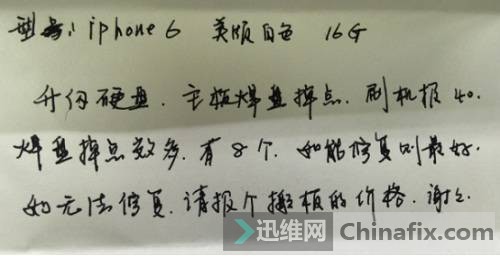 型号: iphone 6 美版白色 16G
升级硬盘. 主板焊盘掉点. 刷机报 40.
焊盘掉点数多. 有 8 个. 如能修复则最好.
如无法修复. 请报个搬板的价格. 谢谢.
迅维网 Chinafix.com